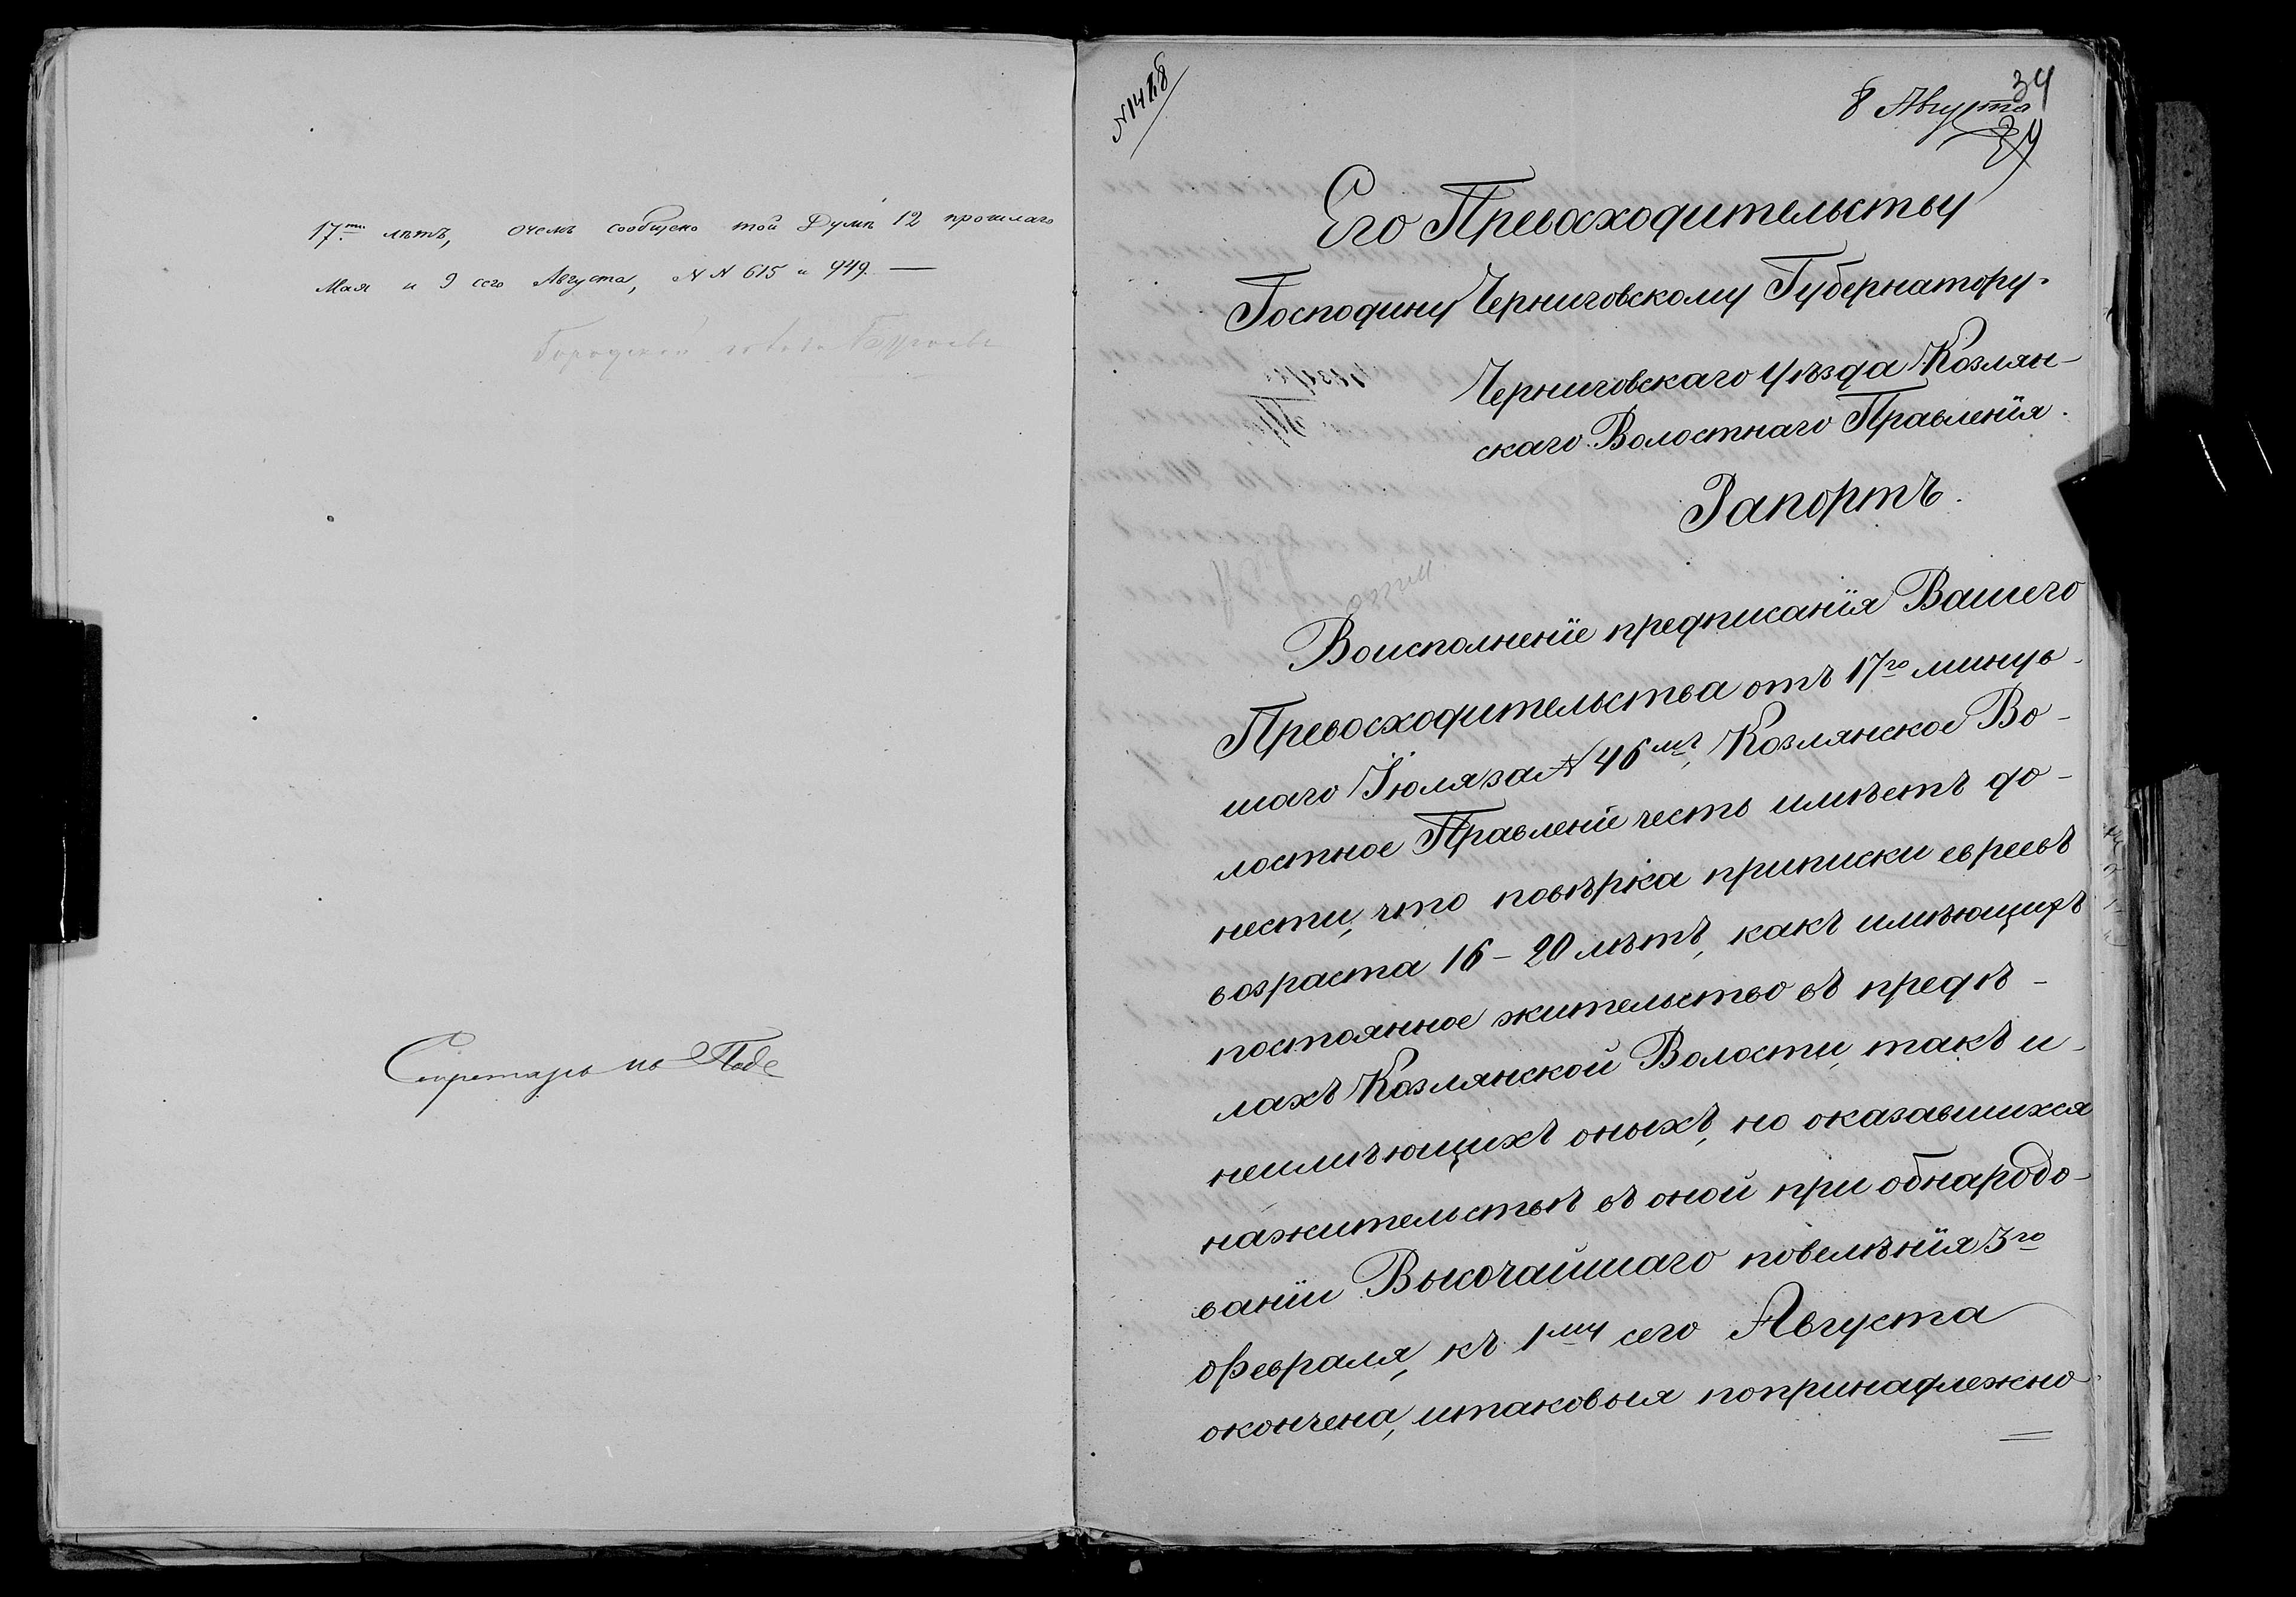 17ти лѣтъ, очемъ сообщено той Думѣ 12 прошлаго
Мая и 9 сего Августа, №№ 615 и 949. —
Секретарь
№ 1428
34
8 Августа
Его Превосходительству
Господину Черниговскому Губернатору.
Черниговскаго уѣзда Козлян-
скаго Волостнаго Правленія.
Рапортъ.
Воисполненіе предписанія Вашего
Превосходительства отъ 17го минув-
шаго Іюля за № 46мъ, Козлянское Во-
лостное Правленіе честь имѣетъ до-
нести, что повѣрка приписки евреевъ
возраста 16-20 лѣтъ, какъ имѣющихъ
постоянное жительство въ предѣ-
лахъ Козлянской Волости, такъ и
неимѣющихъ оныхъ, но оказавшихся
нажительствѣ въ оной при обнародо-
ваніи Высочайшаго повелѣнія 3го
Февраля, къ 1му сего Августа
окончена, итаковыя попринадлежно